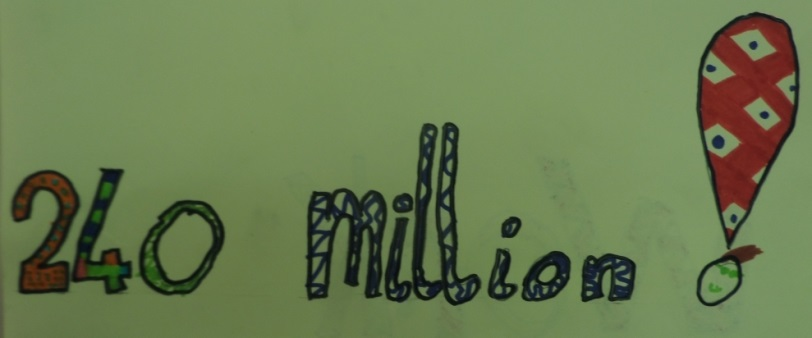 240 million!